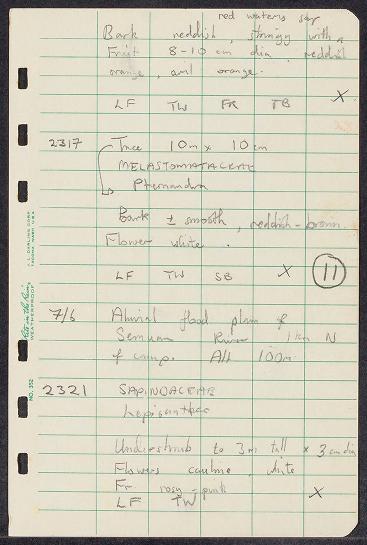 red watery sap
Bark reddish, stringy with a
Fruit 8-10 cm dia, reddish
orange, aril orange.
LF TW FR TB X
2317 Tree 10m x 10cm
MELASTOMATACEAE
Pternandra
Bark ± smooth, reddish-brown.
Flower white.
LF TW SB X 11
7/6 Aluvial flood plain of
Semuan River 1km N
of camp. Alt 100m
2321 SAPINDACEAE
Lepisanthes
Undershrub to 3m tall x 3cm dia
Flowers cauline, white
Fr rosy-pink
LF TW X
"Rite in the Rain"
WEATHERPROOF
J. L. DARLING CORP.
TACOMA, WASH. U.S.A.
NO. 352